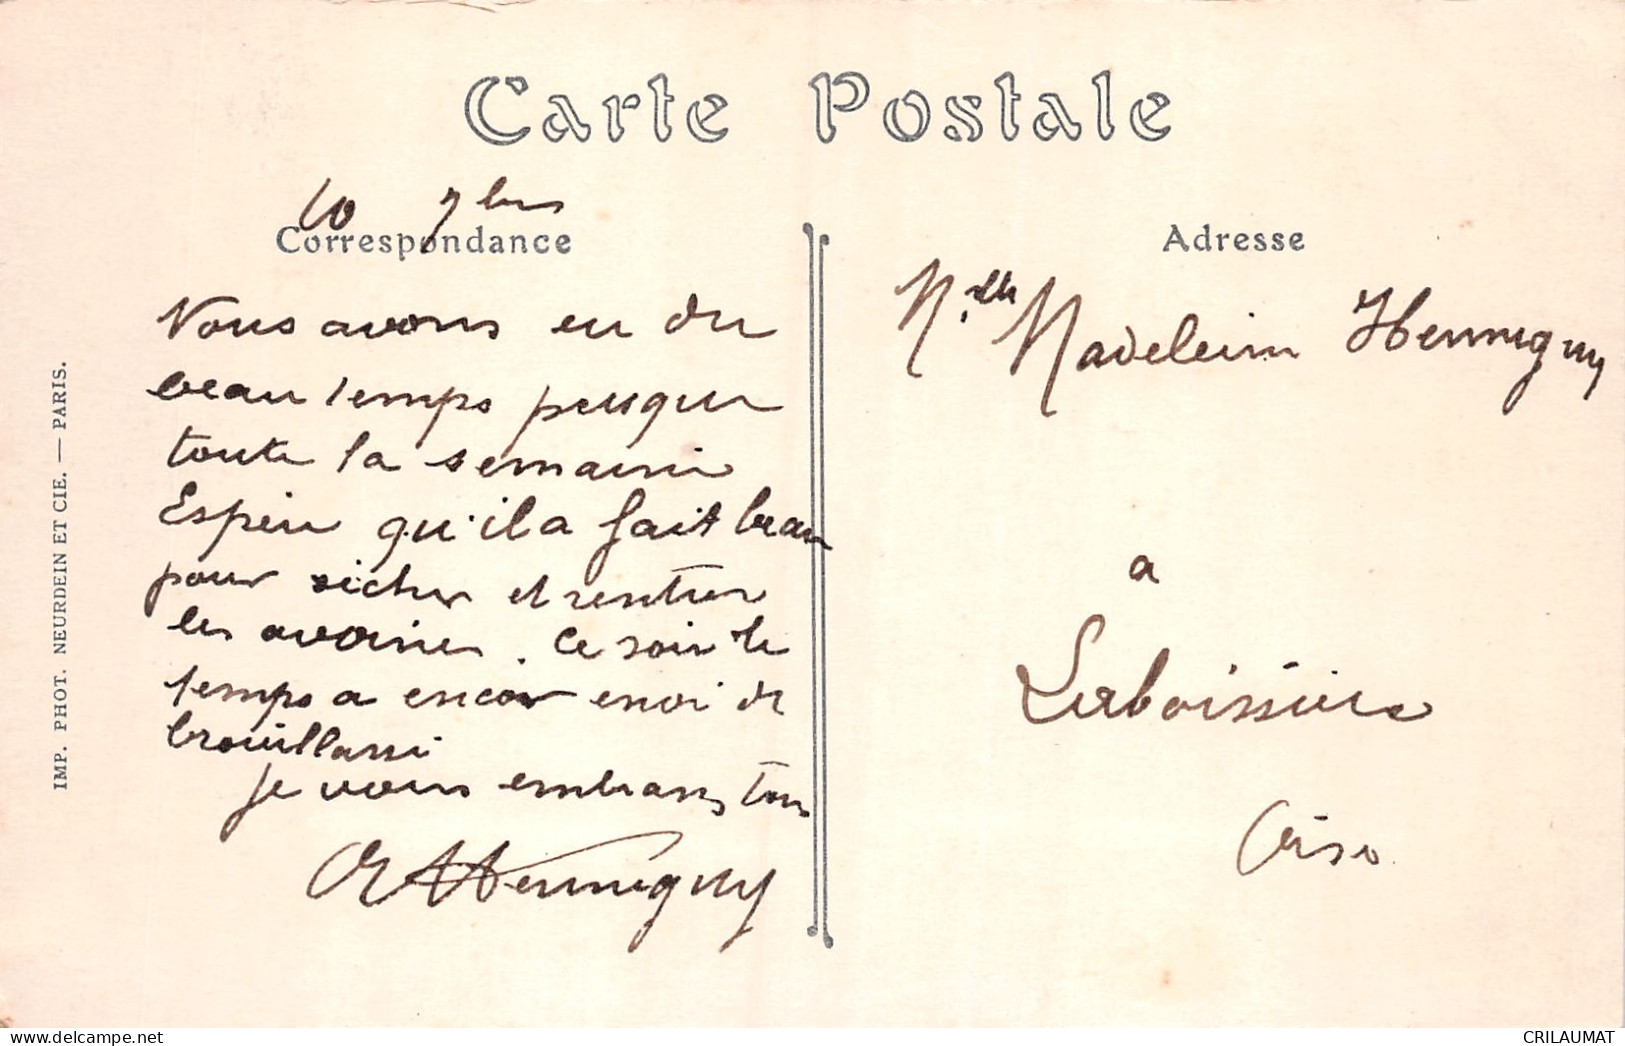 Carte Postale
10 7bre
Correspondance
Adresse
Nous avons eu du
beau temps presque
toute la semaine
Espère qu'il a fait beau
pour sécher et rentrer
les avoines. Ce soir le
temps a encor envi de
brouillassé
Je vous embrass tous
Hennegny
Melle Madeleine Hennegny
a
Laboissière
Oise
IMP. PHOT. NEURDEIN ET CIE. — PARIS.
CRILAUMAT